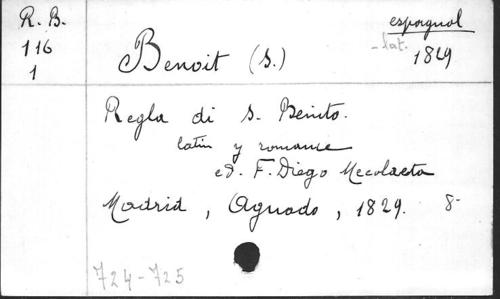 R. B.
116
1
espagnol
- lat.
1829
Benoit (S.)
Regla di S. Benito.
latin y romance
ed. F. Diego Mecolaeta
Madrid, Aguado, 1829. 8-
724-725